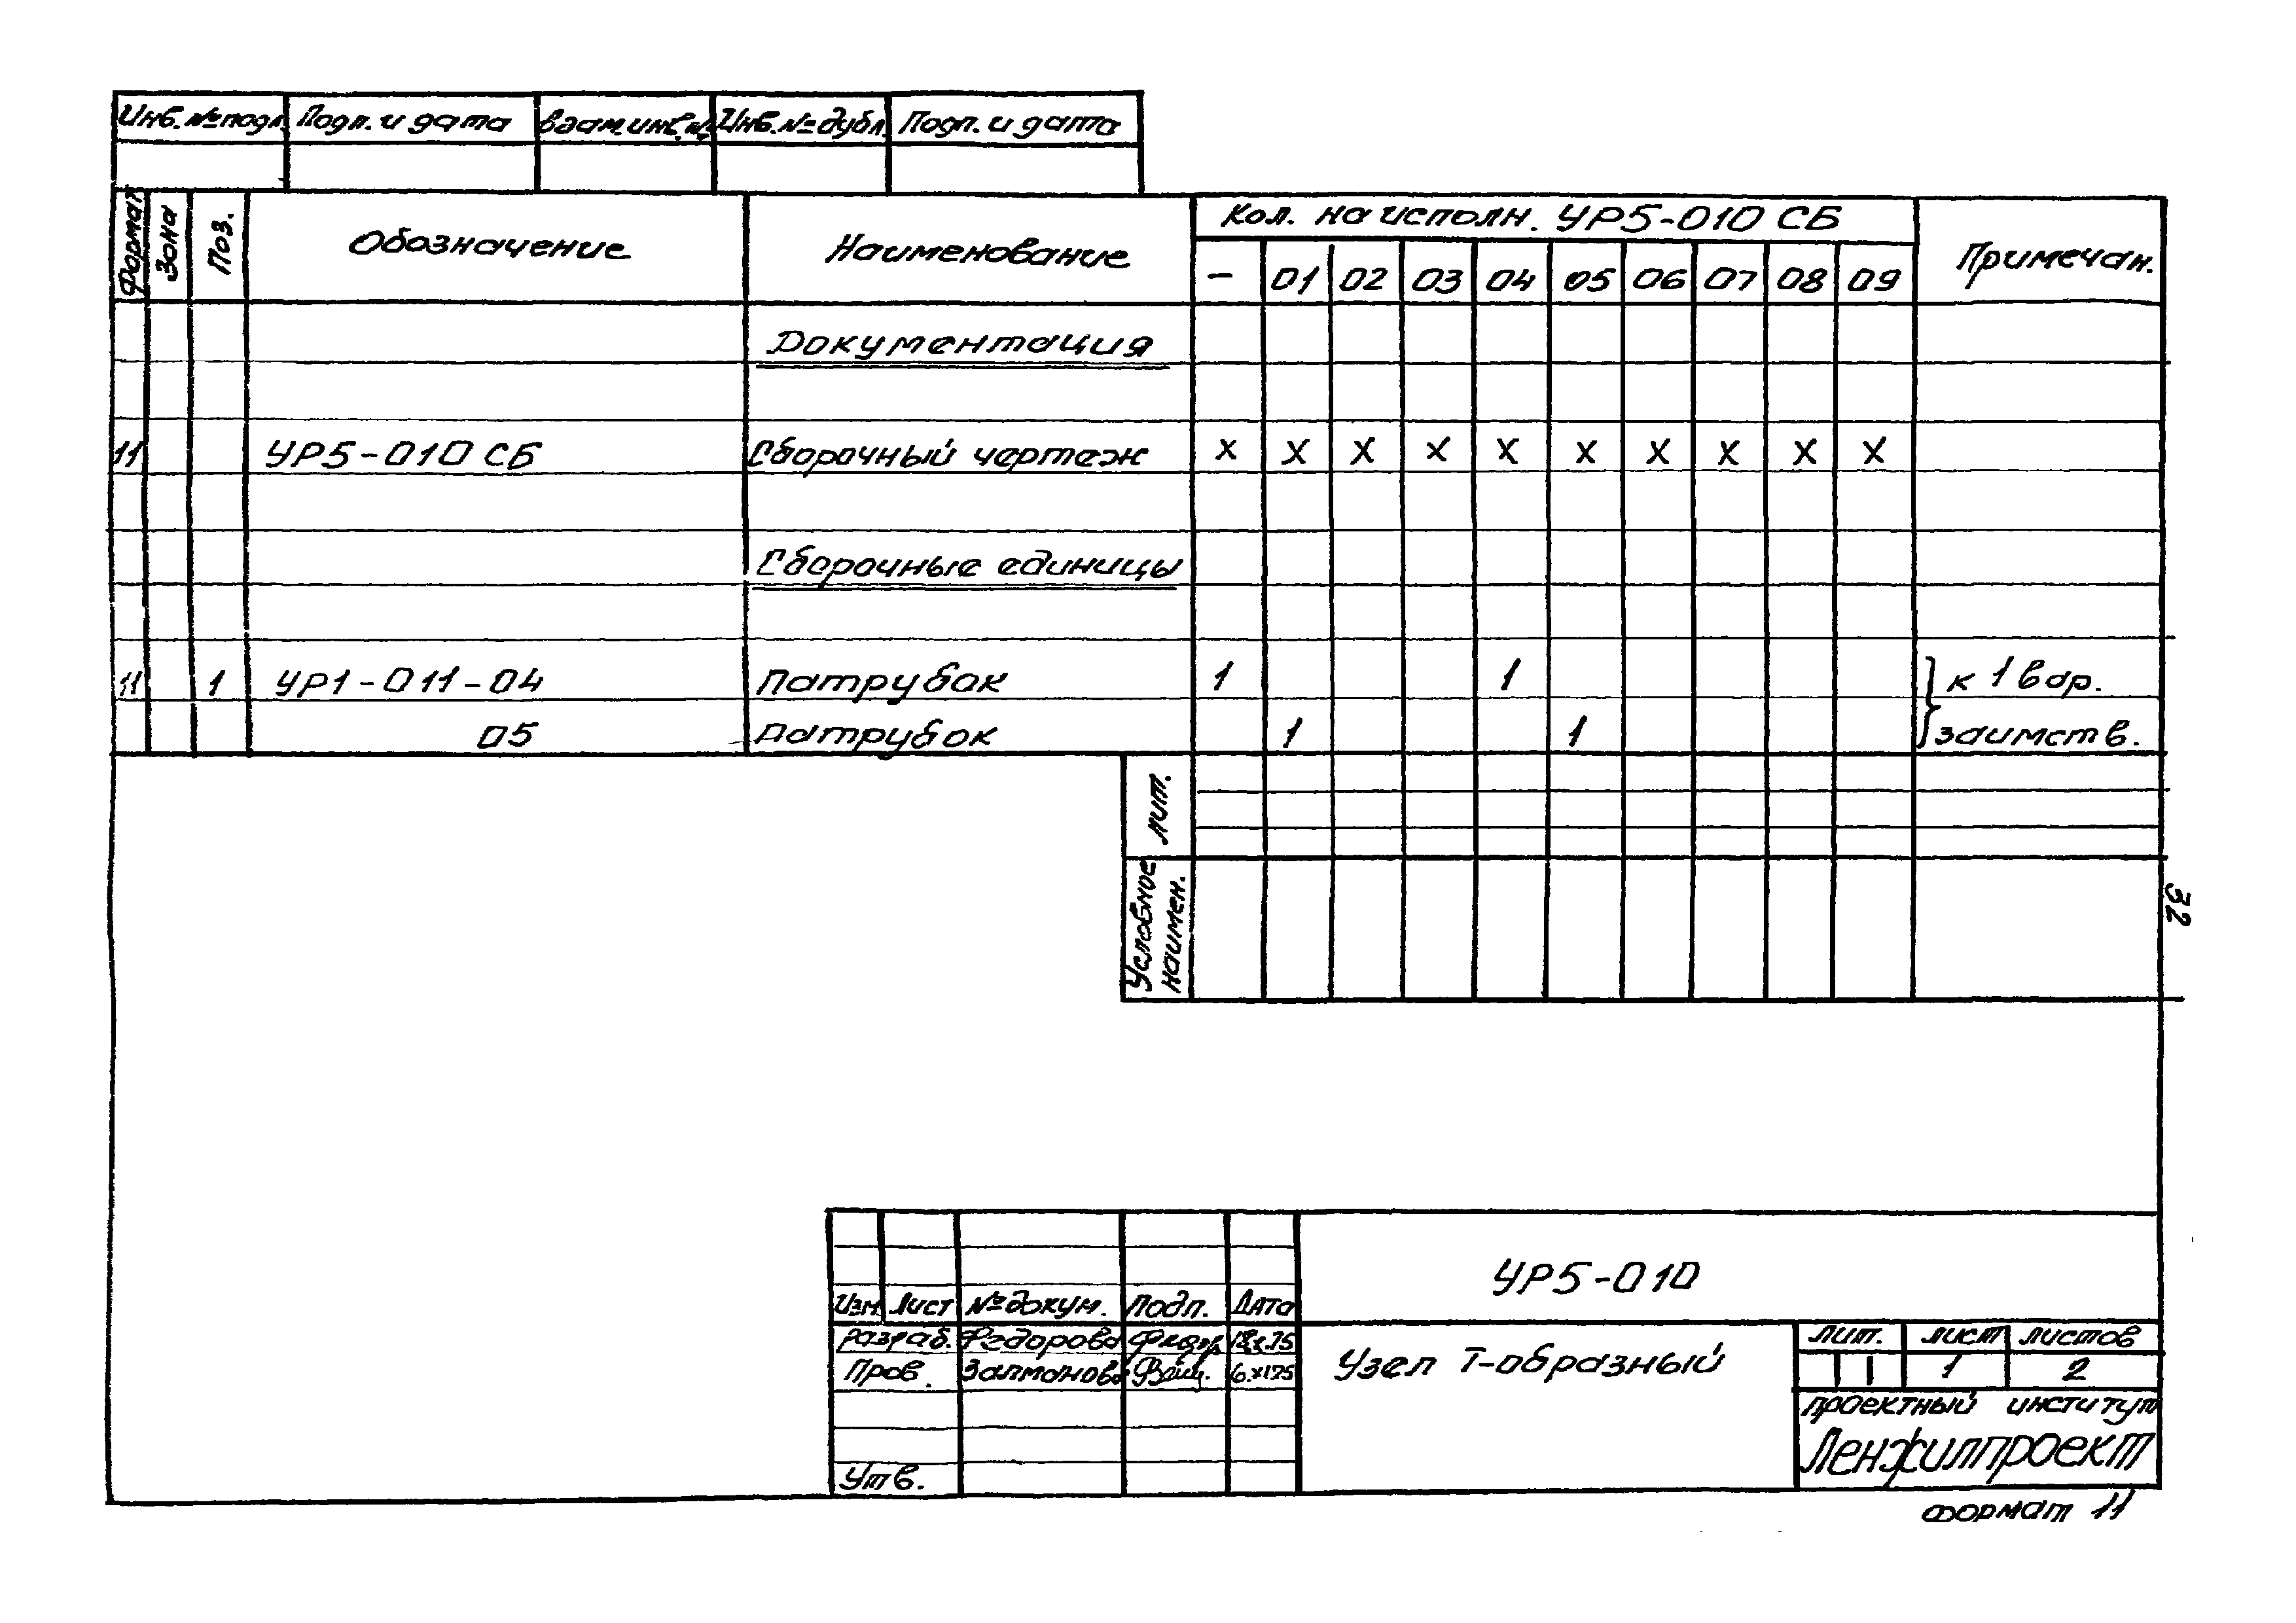 Инв. № подл. Подп. и дата Взам. инв. № Инв. № дубл. Подп. и дата
Формат Зона Поз. Обозначение Наименование Кол. на исполн. УР5-010 СБ Примечан.
- 01 02 03 04 05 06 07 08 09
Документация
11 УР5-010 СБ Сборочный чертеж х х х х х х х х х х
Сборочные единицы
11 1 УР1-011-04 Патрубок 1 1 к 1 вар.
05 Патрубок 1 1 заимств.
Лит.
Условное
наимен.
32
УР5-010
Изм Лист № докум. Подп. Дата
Разраб. Федорова
Пров.
Утв.
Узел Т-образный
Лит. Лист Листов
1 2
Проектный институт
Ленжилпроект
Формат 11